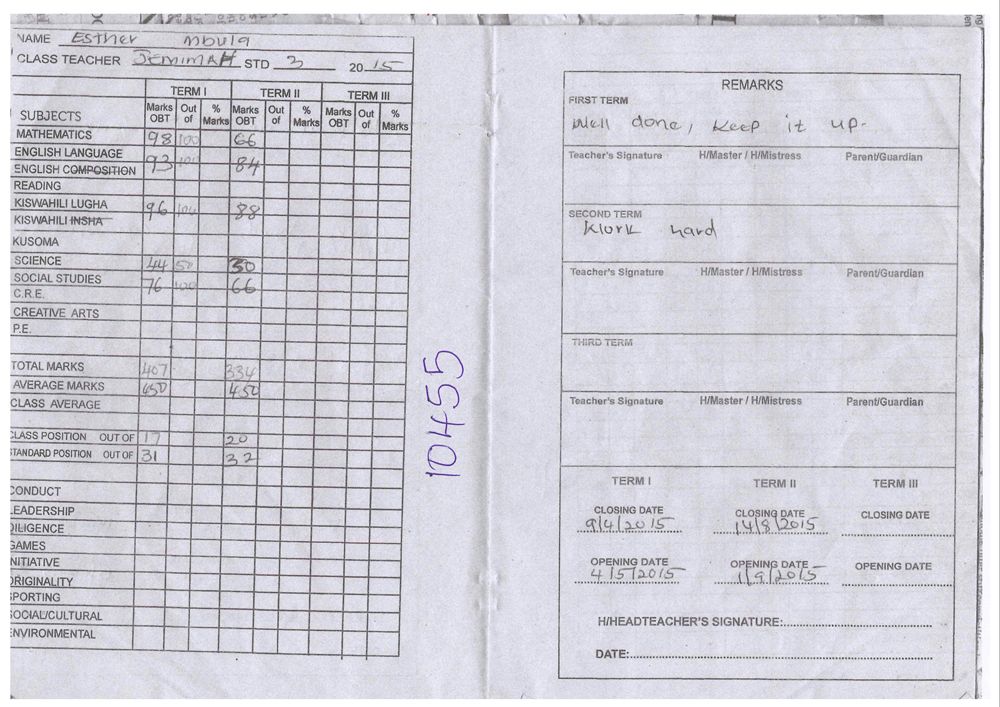 NAME Esther Mbula
CLASS TEACHER JEMIMAH STD 3 2015
TERM I TERM II TERM III
SUBJECTS Marks OBT Out of % Marks Marks OBT Out of % Marks Marks OBT Out of % Marks
MATHEMATICS 98 100 66
ENGLISH LANGUAGE
ENGLISH COMPOSITION 93 100 84
READING
KISWAHILI LUGHA 96 100 88
KISWAHILI INSHA
KUSOMA
SCIENCE 44 50 30
SOCIAL STUDIES 76 100 66
C.R.E.
CREATIVE ARTS
P.E.
TOTAL MARKS 407 334
AVERAGE MARKS 450 450
CLASS AVERAGE
CLASS POSITION OUT OF 17 20
STANDARD POSITION OUT OF 31 32
CONDUCT
LEADERSHIP
DILIGENCE
GAMES
INITIATIVE
ORIGINALITY
SPORTING
SOCIAL/CULTURAL
ENVIRONMENTAL
10455
REMARKS
FIRST TERM
Well done, keep it up.
Teacher's Signature H/Master / H/Mistress Parent/Guardian
SECOND TERM
Work hard
Teacher's Signature H/Master / H/Mistress Parent/Guardian
THIRD TERM
Teacher's Signature H/Master / H/Mistress Parent/Guardian
TERM I TERM II TERM III
CLOSING DATE CLOSING DATE CLOSING DATE
9/4/2015 14/8/2015
OPENING DATE OPENING DATE OPENING DATE
4/5/2015 1/9/2015
H/HEADTEACHER'S SIGNATURE:
DATE: